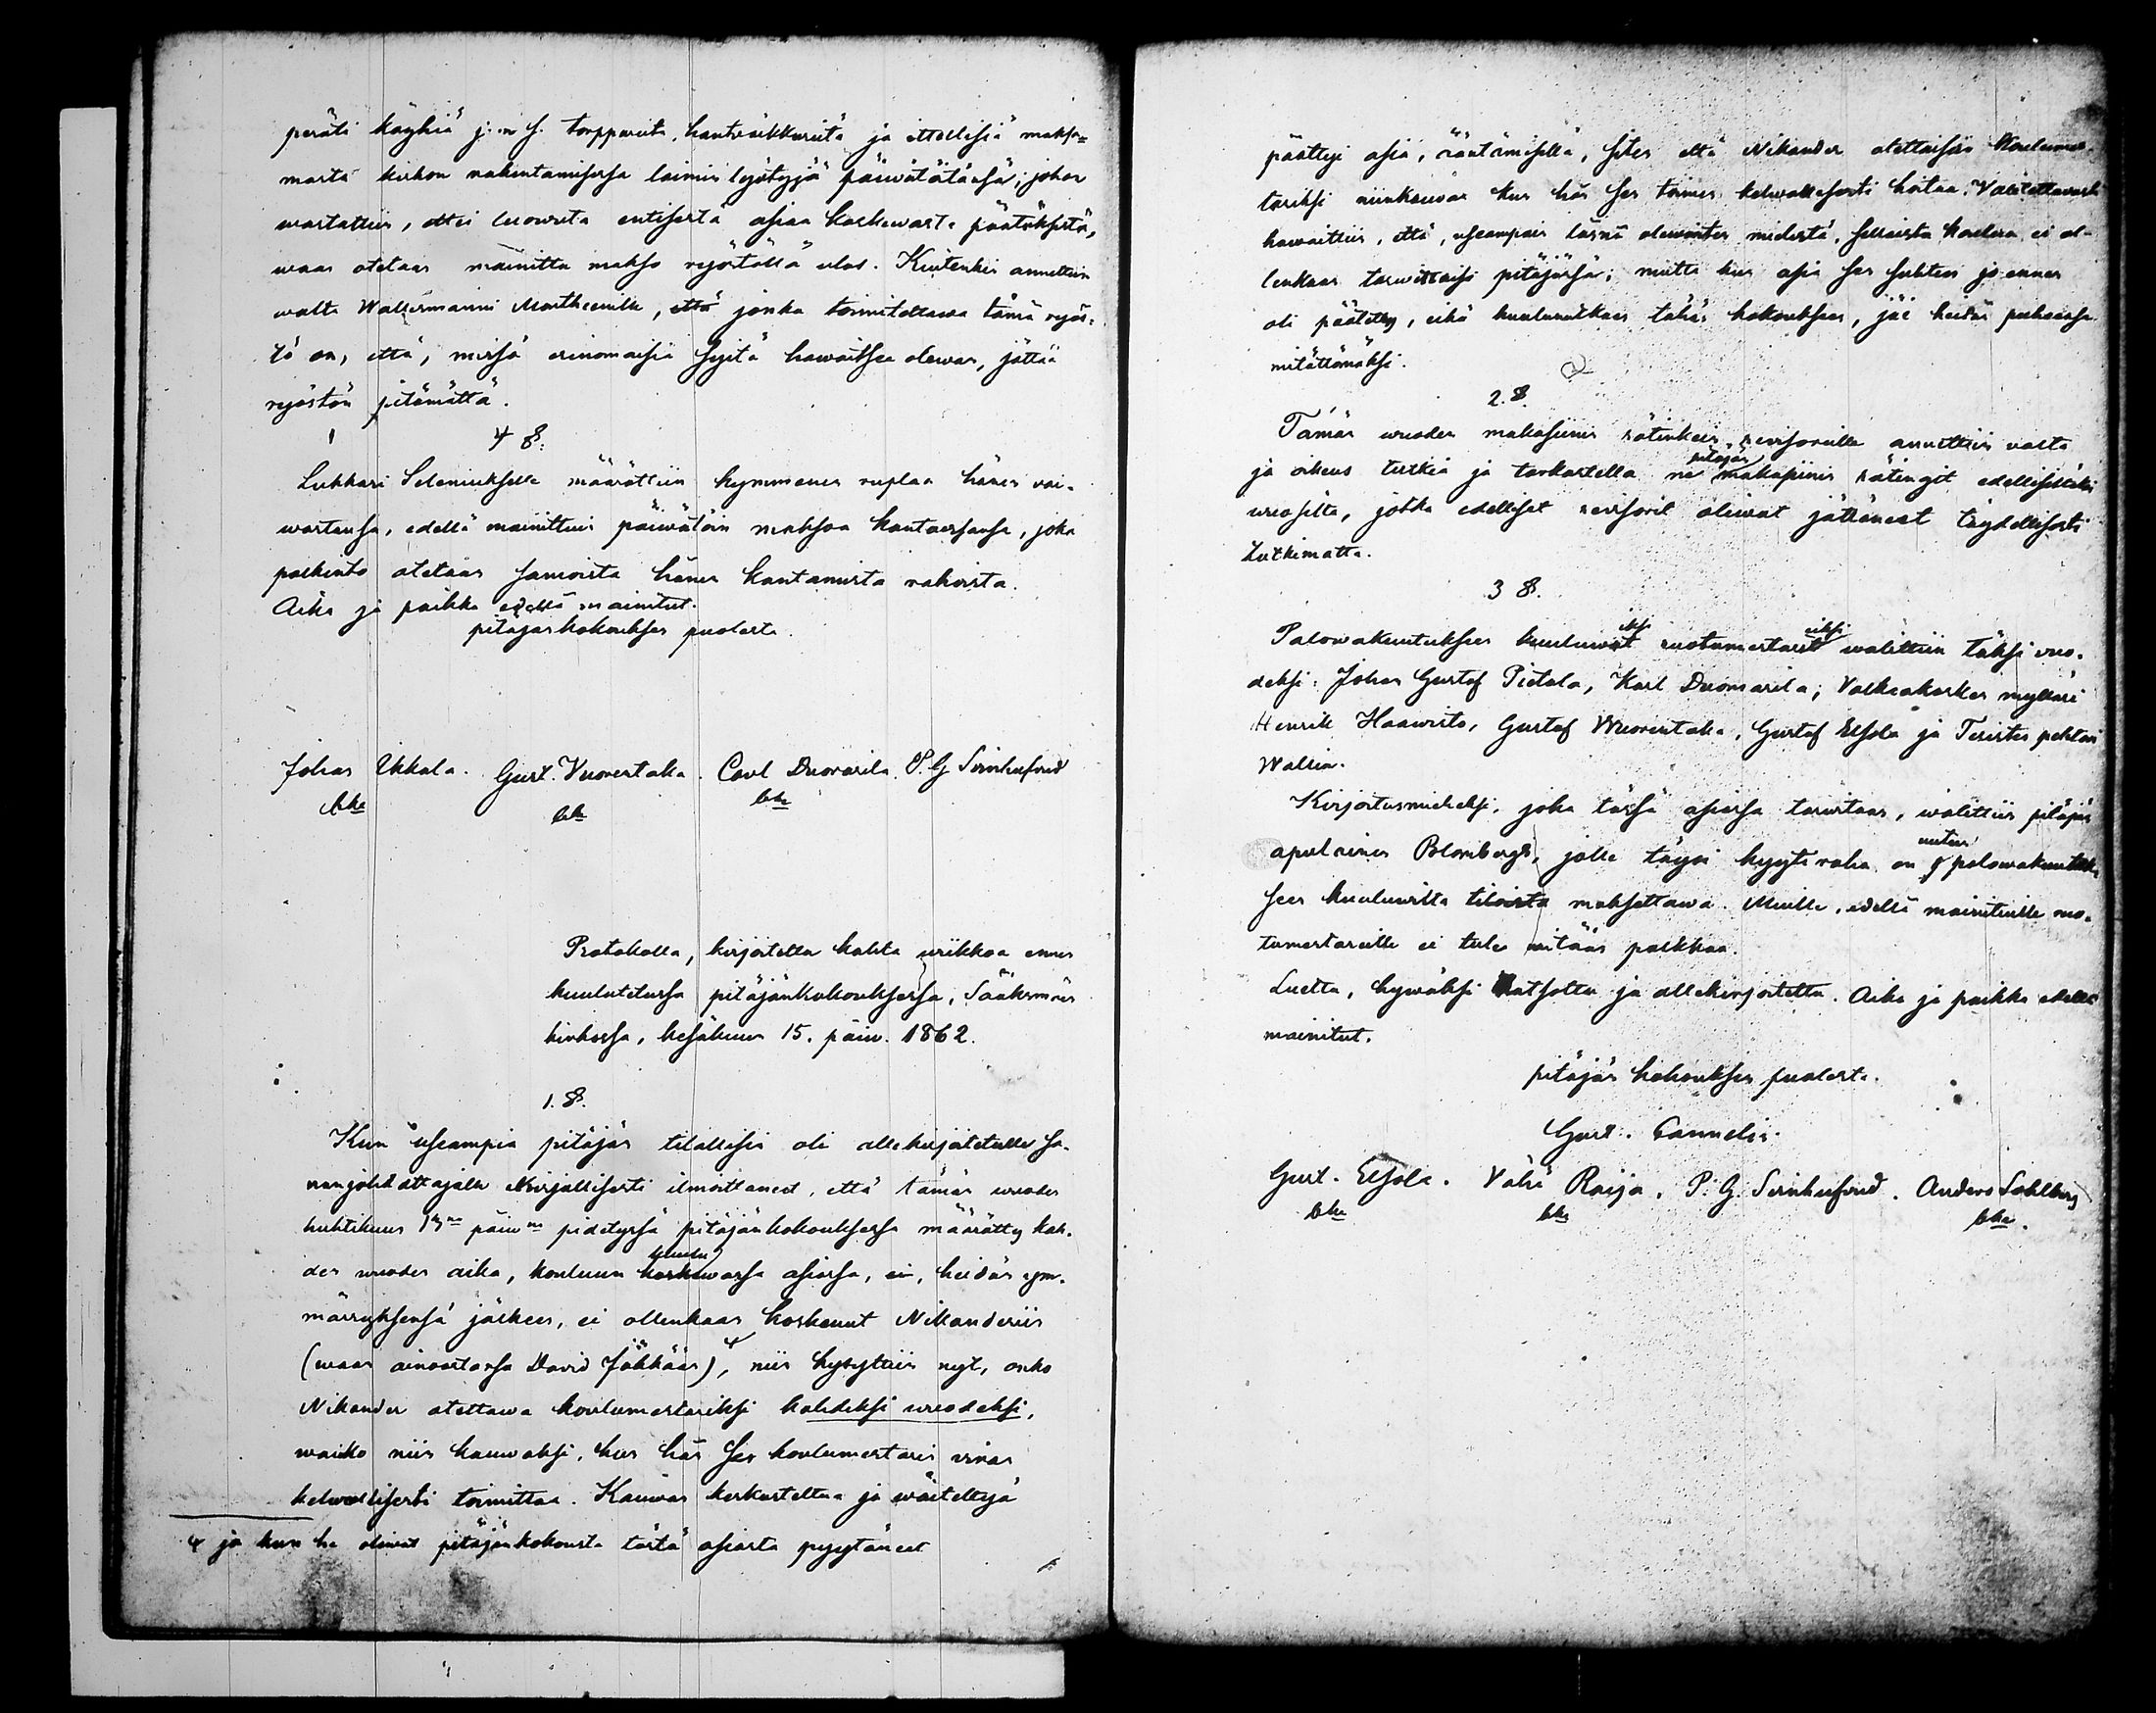 peräti köyhiä j. n. s. torpparita, hantvärkkarita ja itsellisiä maksa-
masta kirkon rakentamisessa laimin lyötyjä päiwätöitänsä; johon
wastattiin, ettei luowuta entisestä asiaa koskewasta päätöksestä,
waan otetaan mainittu makso ryöstöllä ulos. Kuitenkin annettiin
walta Wallesmanni Martheenille, että jonka toimitettawa tämä ryös-
tö on, että, missä erinomaisia syitä hawaitsee olewan, jättää
ryöstön pitämättä.
4 §.
Lukkari Seleniukselle määrättiin kymmenen ruplaa hänen wai-
wastansa, edellä mainittuin päiwätöin maksoa kantaessansa, joka
palkinto otetaan samoista hänen kantamista rahoista.
Aika ja paikka edellä mainitut.
pitäjänkokouksen puolesta.
Johan Ukkola. Gust. Vuorentaka. Carl Duomarila. P. G Svinhufvud
bke bke bke
Protokolla, kirjoitettu kahta wiikkoa ennen
kuulutetussa pitäjänkokouksessa, Sääksmäen
kirkossa, kesäkuun 15. päiw. 1862.
1. §.
Kun useampia pitäjän tilallisia oli allekirjoitetulle pu-
heenjohdattajalle kirjallisesti ilmoittaneet, että tämän wuoden
huhtikuun 13:na päiw:nä pidetyssä pitäjänkokouksessa määrätty kah-
den wuoden aika, kouluun koskewassa asiassa, ei, heidän ym-
märryksensä jälkeen, ei ollenkaan koskenut Nikanderiin
(waan ainoastansa David Jökkään) ⁴, niin kysyttiin nyt, onko
Nikander otettawa koulumestariksi kahdeksi wuodeksi,
waiko niin kauwaksi, kun hän sen koulumestarin wiran
kelwollisesti toimittaa. Kauwan keskusteltua ja wäiteltyä
4 ja kun he oliwat pitäjänkokousta tästä asiasta pyytäneet
päättyi asia, ääntämisellä, siten että Nikander otettaisiin koulumes-
tariksi niinkauwan kun hän sen toimen kelwollisesti hoitaa. Valitettawasti
hawaittiin, että, useampain läsnä olewainten mielestä, sellaista koulua ei ol-
lenkaan tarwittaisi pitäjässä; mutta kun asia sen suhteen jo ennen
oli päätetty, eikä kuulunutkaan tähän kokoukseen, jäi heidän puheensa
mitättömäksi.
2. §.
Tämän wuoden makasiinin rätinkein revisoreille annettiin walta
ja oikeus tutkia ja tarkastella ne pitäjän makasiinin rätingit edellisiltäkin
wuosilta, jotka edelliset revisorit oliwat jättäneet täydellisesti
tutkimatta.
3 §.
Palowakuutukseen kuuluwiksi ruotumestareiksi walittiin täksi wuo-
deksi: Johan Gustaf Pietola, Karl Duomarila; Valkeakosken mylläri
Henrik Haawisto, Gustaf Wuorentaka, Gustaf Elsola ja Teristen pehtori
Wallin.
Kirjoitusmieheksi, joka tässä asiassa tarwitaan, walittiin pitäjän
apulainen Blomberg, jolle täysi kyytiraha on palowakuutuk-
seen kuuluwilta tiloista maksettawa. Muille, edellä mainituille ruo-
tumestareille ei tule mitään palkkaa.
Luettu, hywäksi katsottu ja allekirjoitettu. Aika ja paikka edellä
mainitut.
pitäjän kokouksen puolesta.
Gust. Cannelin.
Gust. Elsola. Vähä Raija. P. G. Svinhufvud. Anders Sohlberg
bke bke bke.